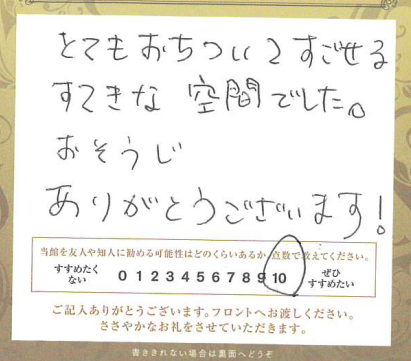 とてもおちついてすごせる
すてきな 空間でした。
おそうじ
ありがとうございます!
当館を友人や知人に勧める可能性はどのくらいあるか、点数で教えてください。
すすめたくない 0 1 2 3 4 5 6 7 8 9 10 ぜひすすめたい
ご記入ありがとうございます。フロントへお渡しください。
ささやかなお礼をさせていただきます。
書ききれない場合は裏面へどうぞ